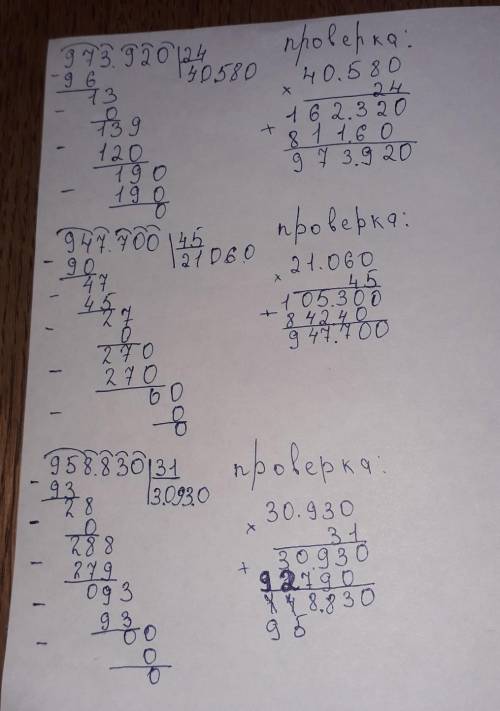 973.920 24
- 96 40580
13
- 0
139
- 120
190
- 190
0
проверка:
40.580
× 24
162.320
+ 811.60
973.920
947.700 45
- 90 21.06.0
47
- 45
27
- 0
270
- 270
00
- 0
0
проверка:
21.060
× 45
105.300
+ 84240
947.700
958.830 31
- 93 3.093.0
28
- 0
288
- 279
093
- 93
00
- 0
0
проверка:
30.930
× 31
30.930
+ 92790
8.830
95